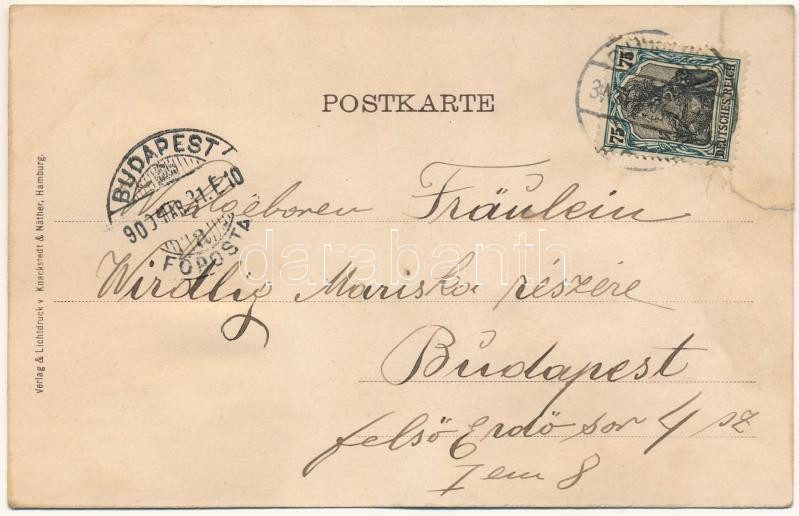 POSTKARTE
75
75
DEUTSCHES REICH
BUDAPEST
900 MAR. 21. E 10
FŐPOSTA
Wohlgeboren Fräulein
Wirdlig Mariska részére
Budapest
felső Erdő sor 4 sz
I em 8
Verlag & Lichtdruck v. Knackstedt & Näther, Hamburg.
darabanth